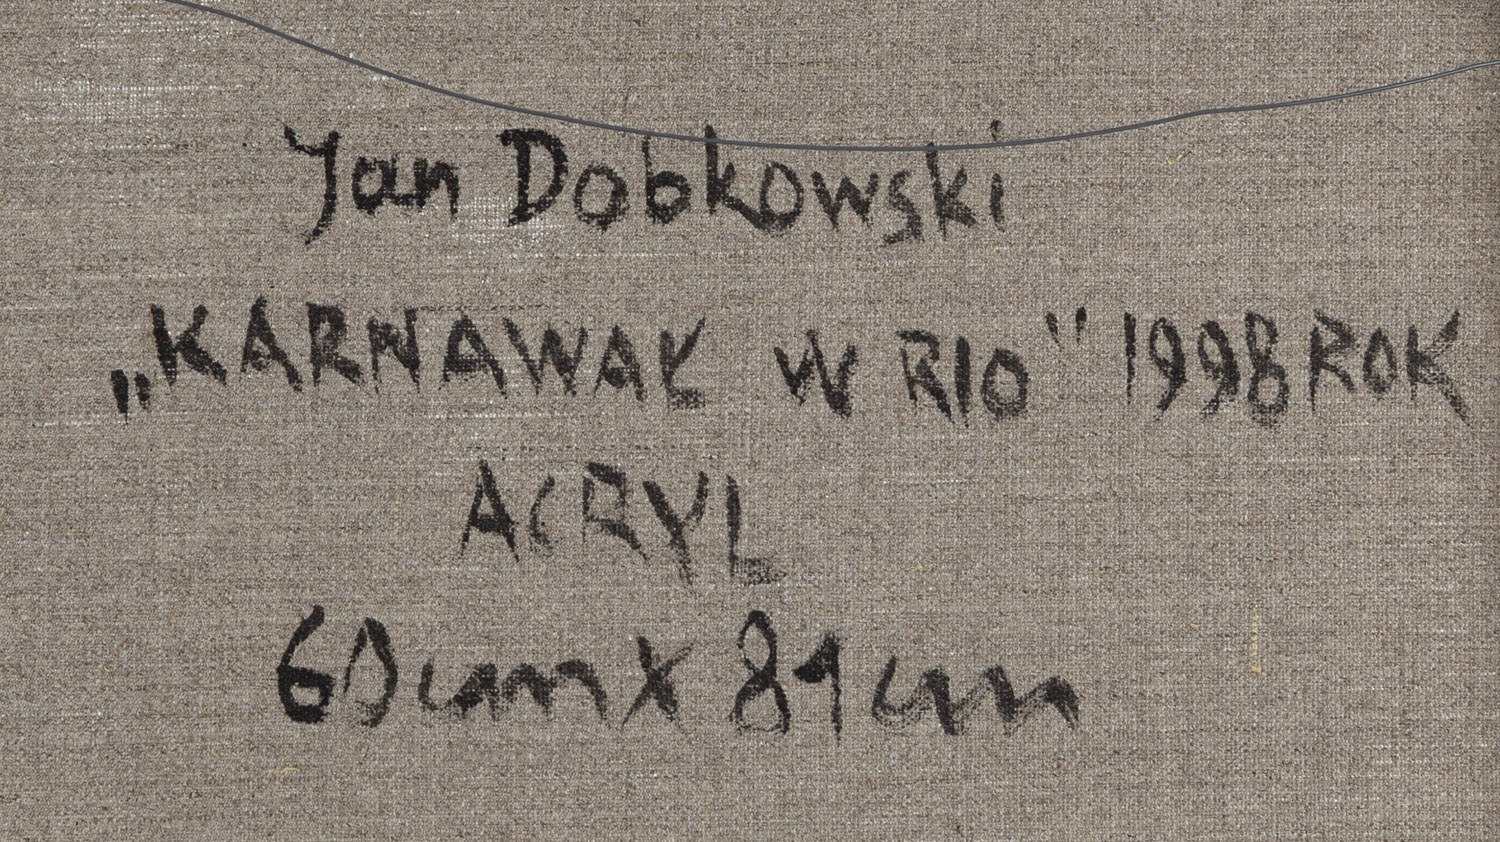 Jan Dobkowski
„KARNAWAŁ W RIO" 1998 ROK
ACRYL
60cm x 81cm